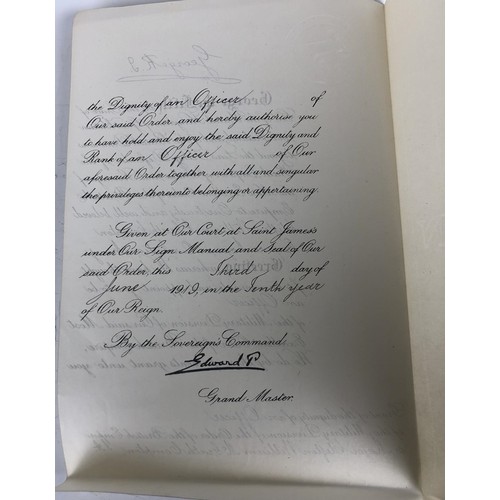 the Dignity of an Officer of
Our said Order and hereby authorise you
to have hold and enjoy the said Dignity and
Rank of an Officer of Our
aforesaid Order together with all and singular
the privileges thereunto belonging or appertaining.
Given at Our Court at Saint James's
under Our Sign Manual and Seal of Our
said Order, this Third day of
June 1919, in the Tenth year
of Our Reign.
By the Sovereign's Command.
Edward P
Grand Master.